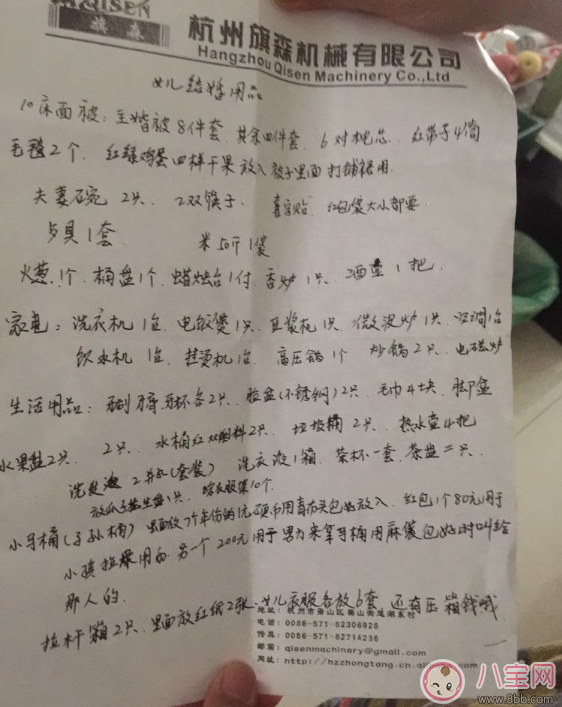 QISEN
旗森
杭州旗森机械有限公司
Hangzhou Qisen Machinery Co.,Ltd
女儿结婚用品
10床面被：主婚被8件套、其余四件套、6对枕芯、红带子4筒
毛毯2个、红绿鸡蛋四样干果放入被子里面打铺裙用
夫妻碗 2只、2双筷子、喜字贴、红包袋大小都要
1套 米50斤1袋
火葱1个、桶盘1个、蜡烛台1付、香炉1只、酒壶1把、
家电：洗衣机1台、电饭煲1只、豆浆机1只、微波炉1只、空调1台
饮水机1台、挂烫机1台、高压锅1个、炒锅2只、电磁炉
生活用品：牙刷牙膏牙杯各2只、脸盆(不锈钢)2只、毛巾4块、脚盆
水果盘2只、2只、水桶红双塑料2只、垃圾桶2只、热水壶4把
洗发液2瓶(套装)、洗衣液1箱、茶杯一套、茶盘二只、
放瓜子 1只、衣服架10个、
小马桶(子孙桶)里面放7个年份的1元硬币用青布夹包好放入、红包1个80元用于
小孩拉尿用的另一个200元用于男方来拿马桶用麻袋包好时叫给
那人的、
拉杆箱2只、里面放红纸2张、女儿衣服各放6套 还有压箱钱哦
地址：杭州市萧山区
电话：0086-571-82306926
传真：0086-571-82714236
邮箱：qisenmachinery@gmail.com
网址：http://hzzhongtang.cn.
八宝网
www.8bb.com